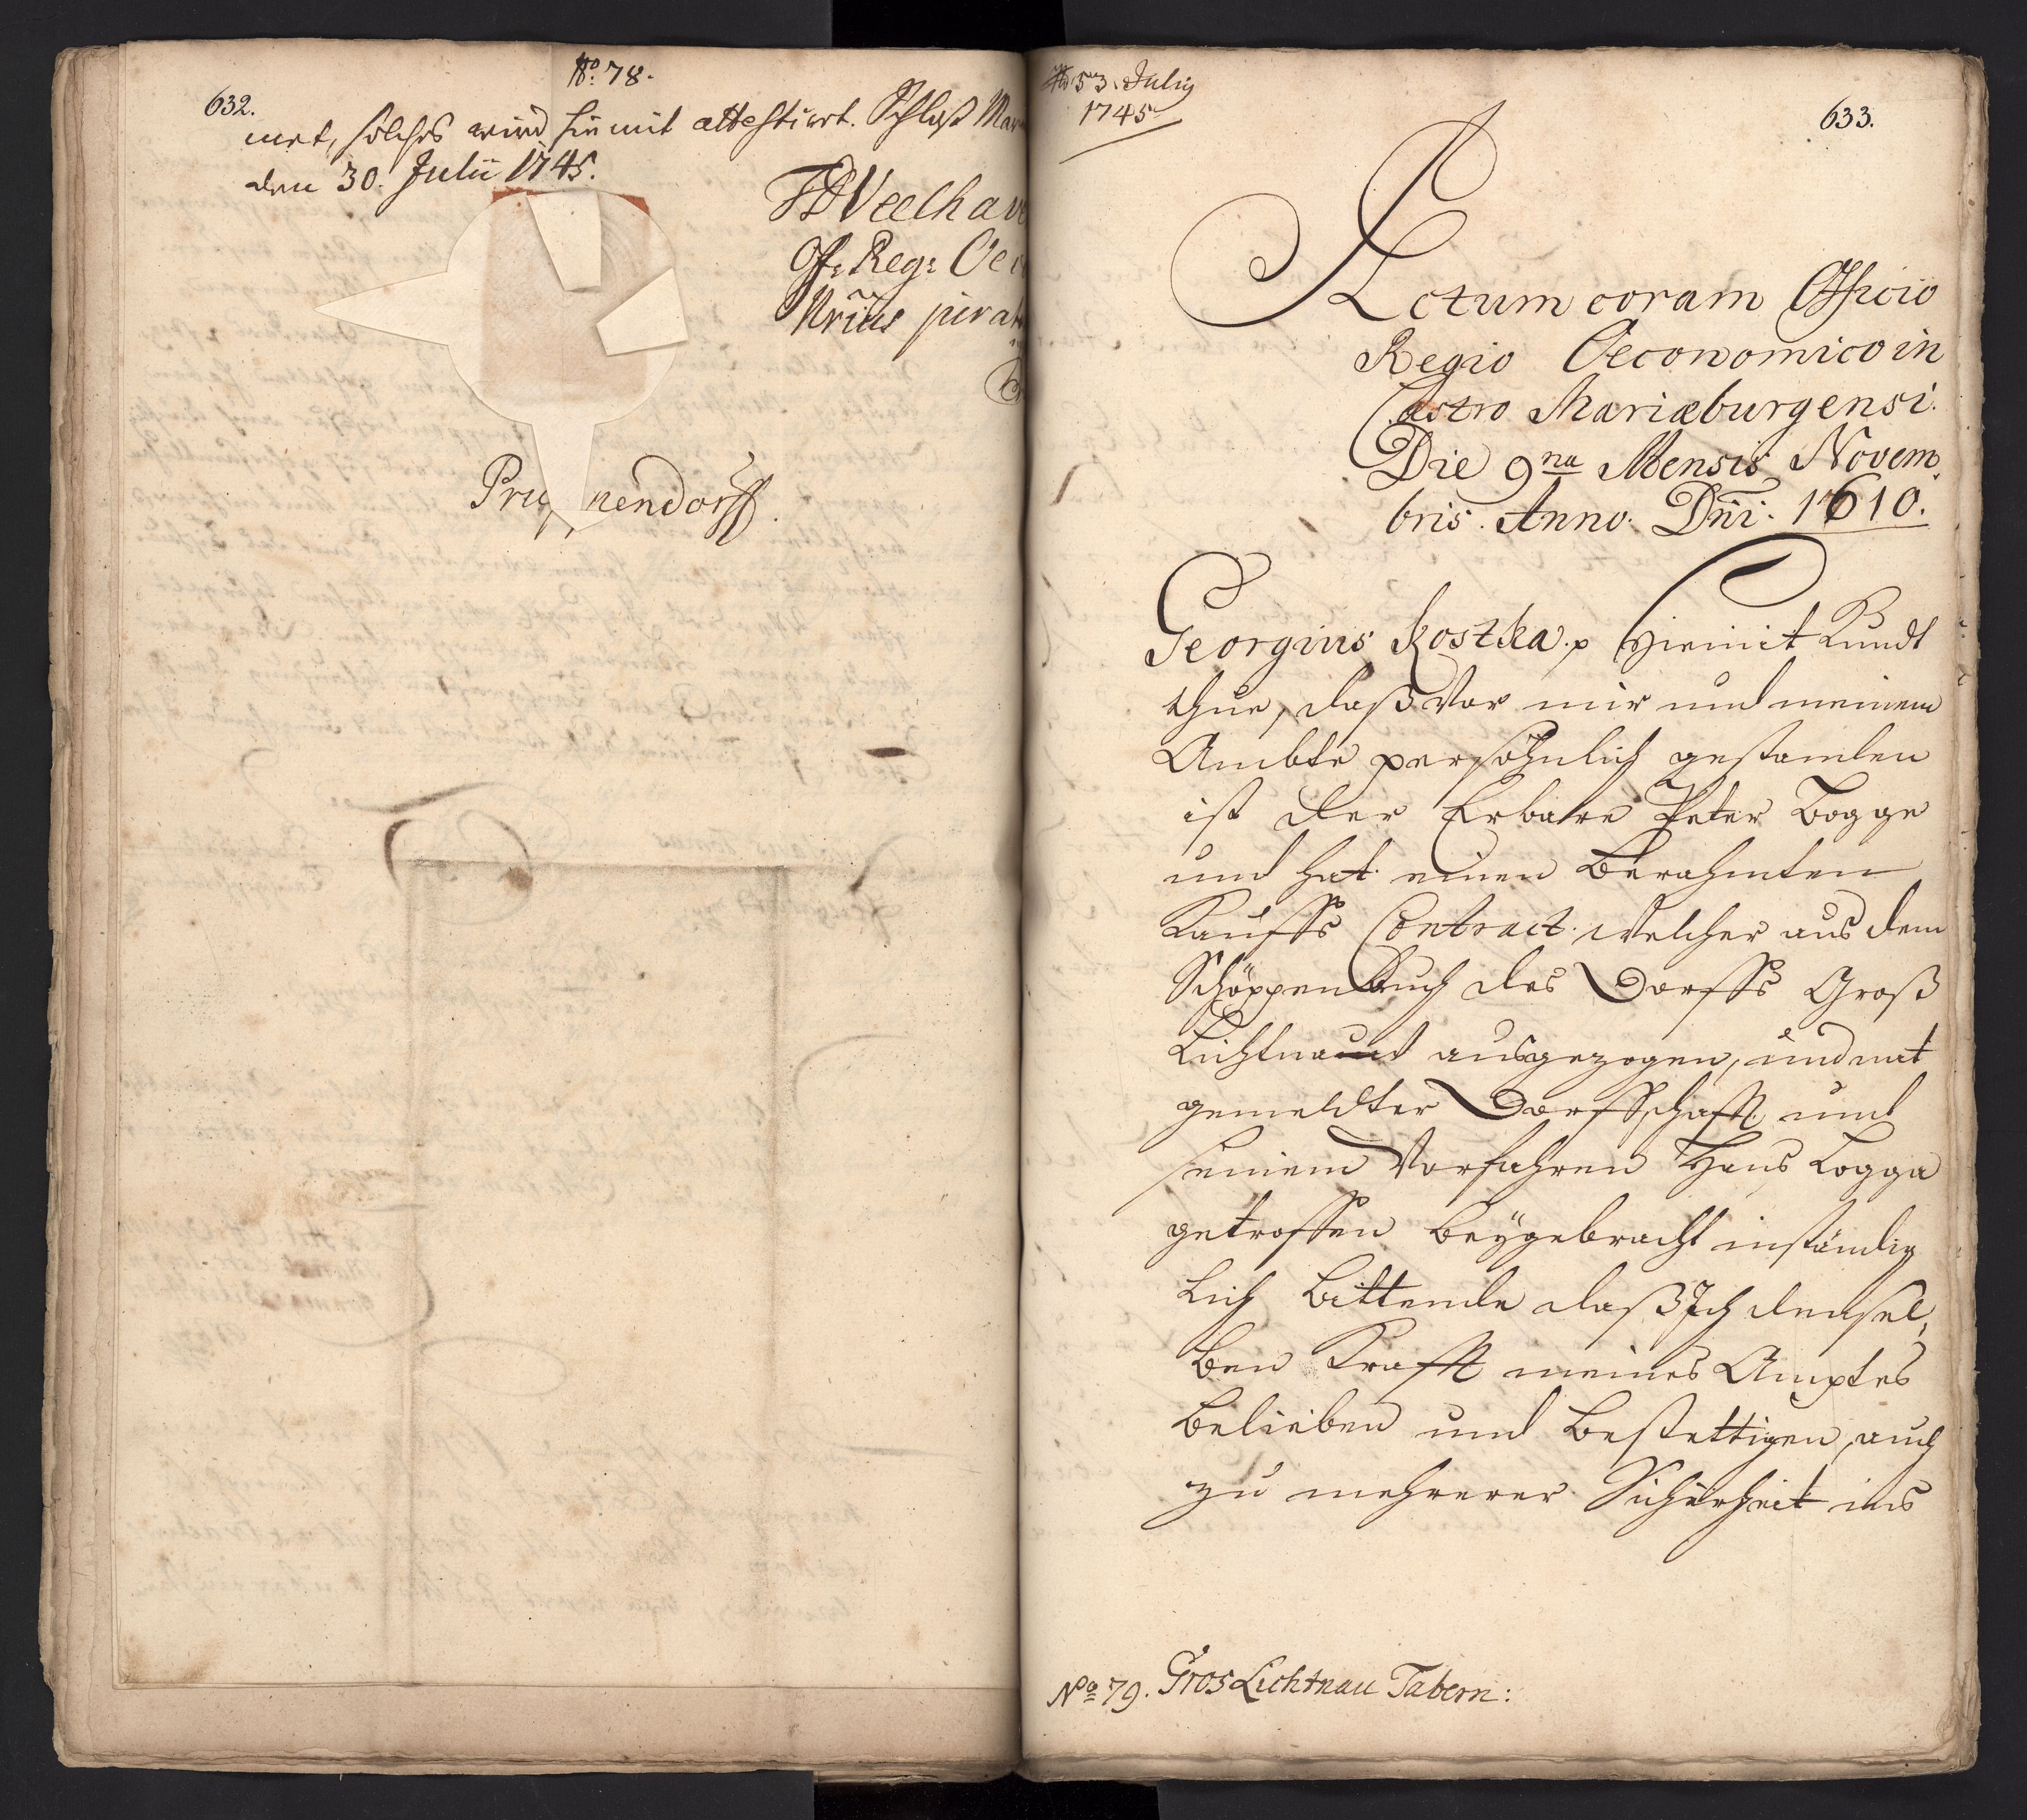 No: 78.
632.
met, solches wird hiemit attestirt. Schloß Mar
den 30. Julii 1745.
Off: Reg: Oec
Nrius jurat
Pru nendorff.
53. Julij
1745
633.
Actum coram Officio
Regio Oeconomico in
Castro Mariæburgensi.
Die 9na Mensis Novem
bris. Anno. Dni. 1610.
Georgius Kostka. p Hiemit Kundt
thue, daß Vor mir und meinem
Ambte persöhnlich gestanden
ist der Erbahre Peter Logge
und hat einen Berahmten
Kauffs Contract. Welcher aus dem
Schöppenbuch des Dorffs Groß
Lichtnau ausgezogen, und mit
gemeldter Dorffschafft und
seinem Vorfahren Hans Logga
getroffen beÿgebracht inständig
Lich bittende daß Ich densel,
ben Krafft meines Amptes
belieben und bestettigen, auch
zu mehrerer Sicherheit ins
No 79. Gros Lichtnau Tabern: